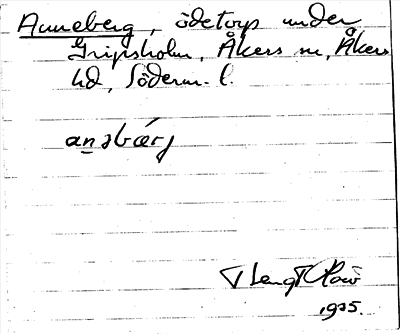 Anneberg, ödetorp under
Gripsholm, Åkers sn, Åkers
hd, Söderm. l.
an̲əbærj
Bengt
1935.